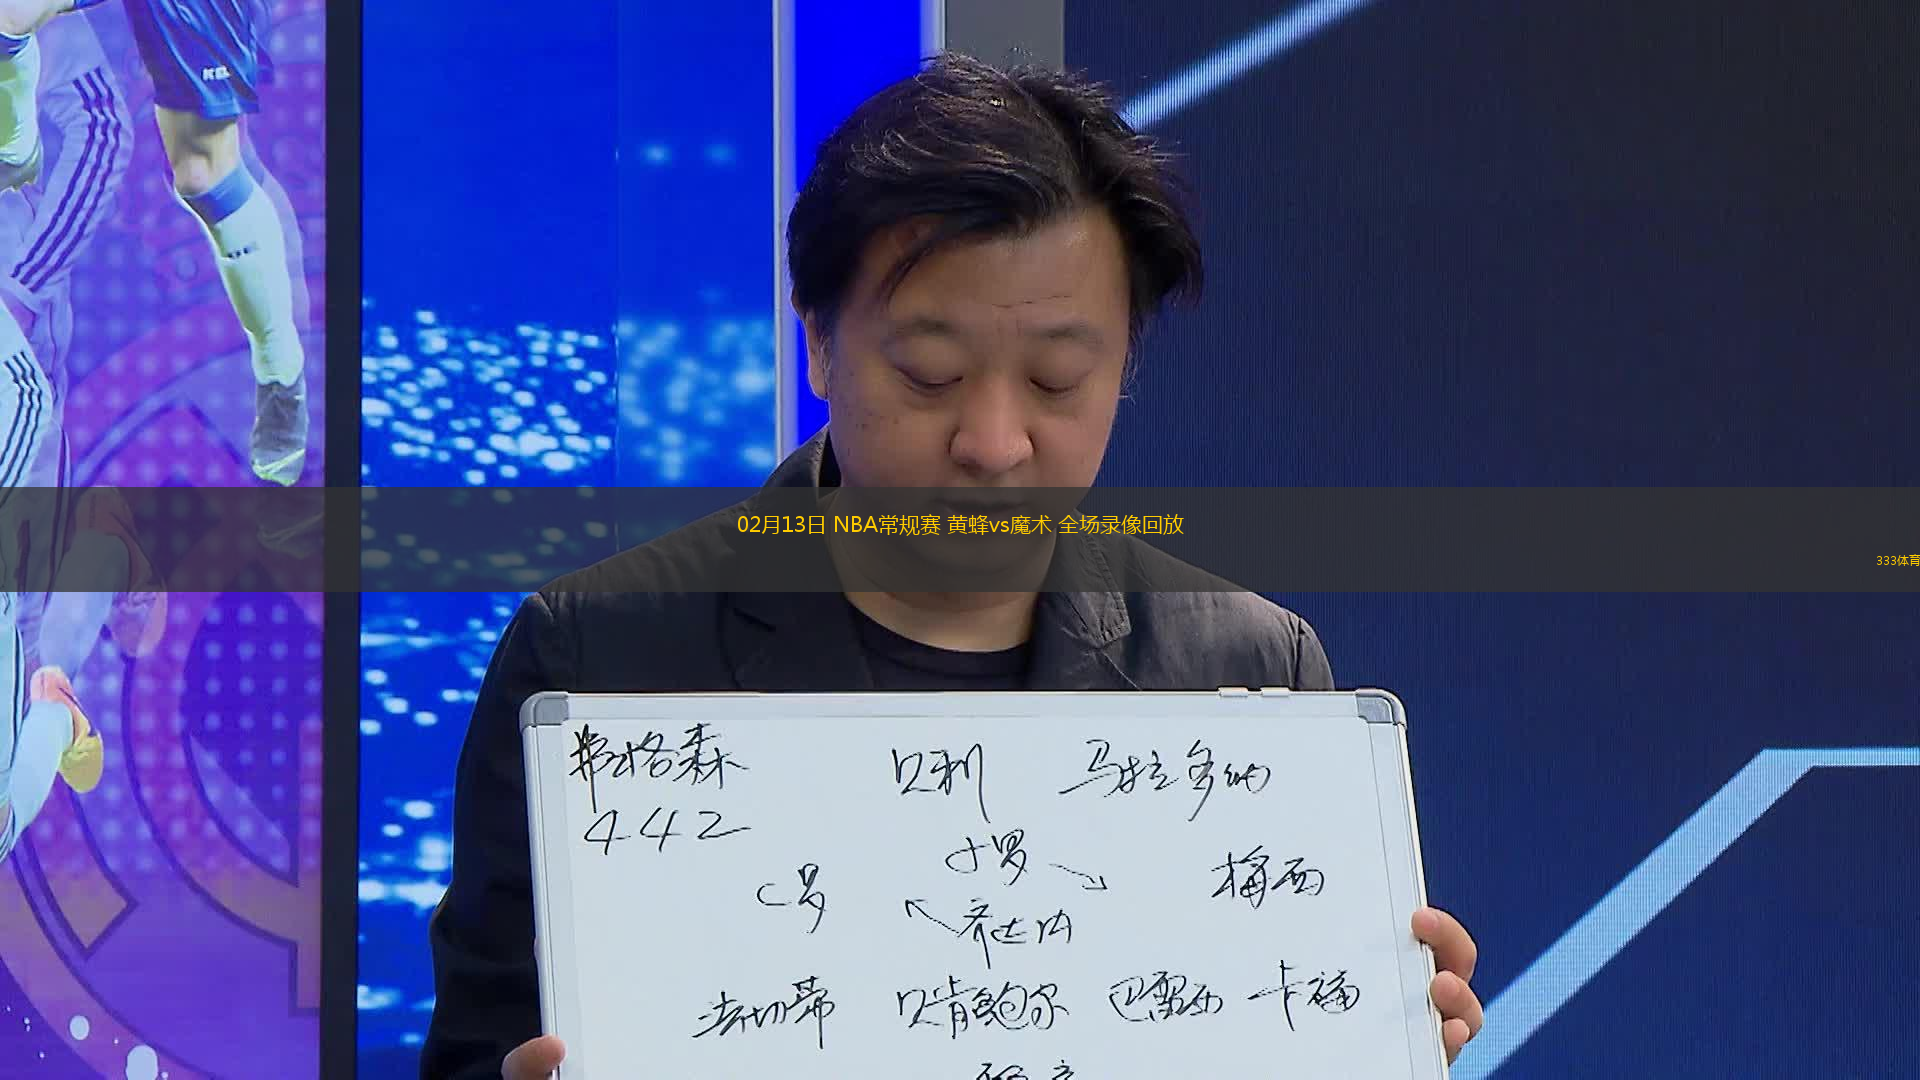 02月13日 NBA常规赛 黄蜂vs魔术 全场录像回放
333体育
弗格森 贝利 马拉多纳
442
小罗
C罗 梅西
齐达内
法切蒂 贝肯鲍尔 巴雷西 卡福